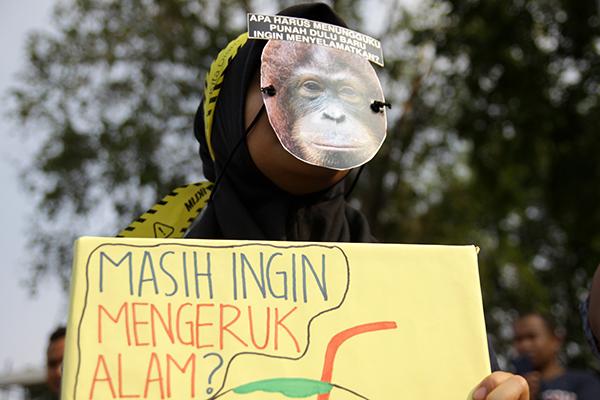 APA HARUS MENUNGGU
PUNAH DULU BARU
INGIN MENYELAMATKAN?
MASIH INGIN
MENGERUK
ALAM?